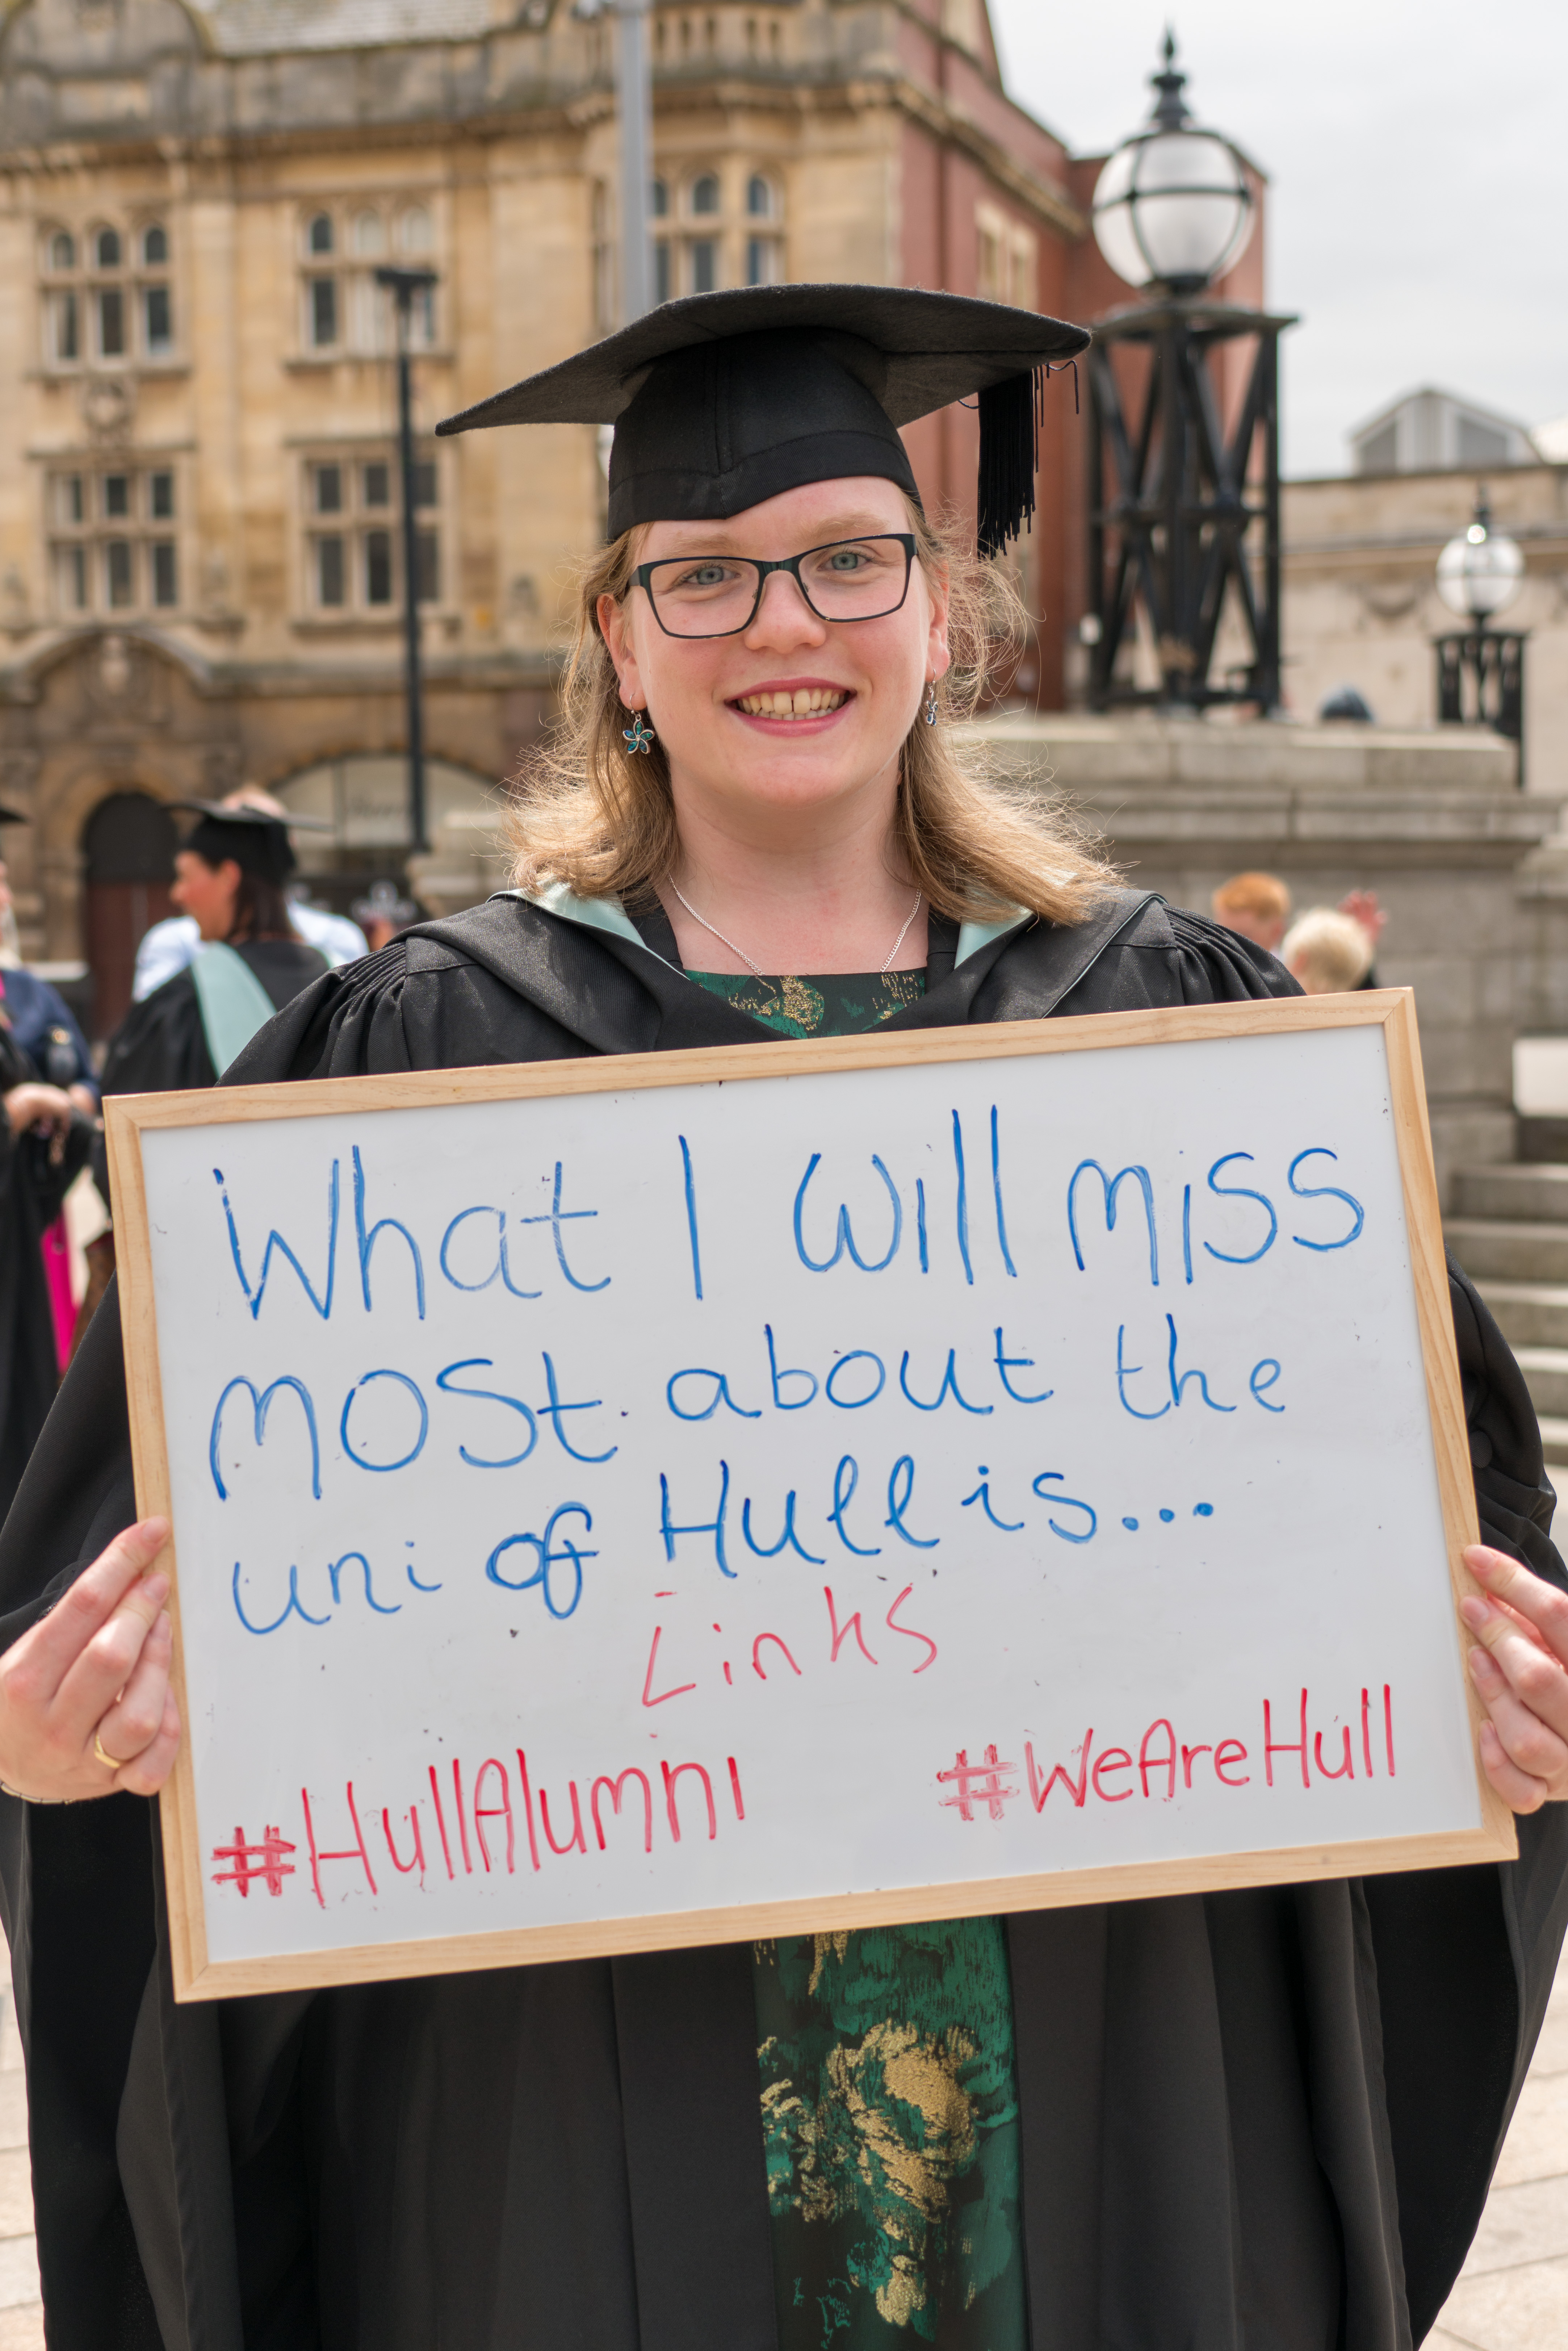 What I Will miss
most about the
uni of Hull is...
Links
#HullAlumni #WeAreHull